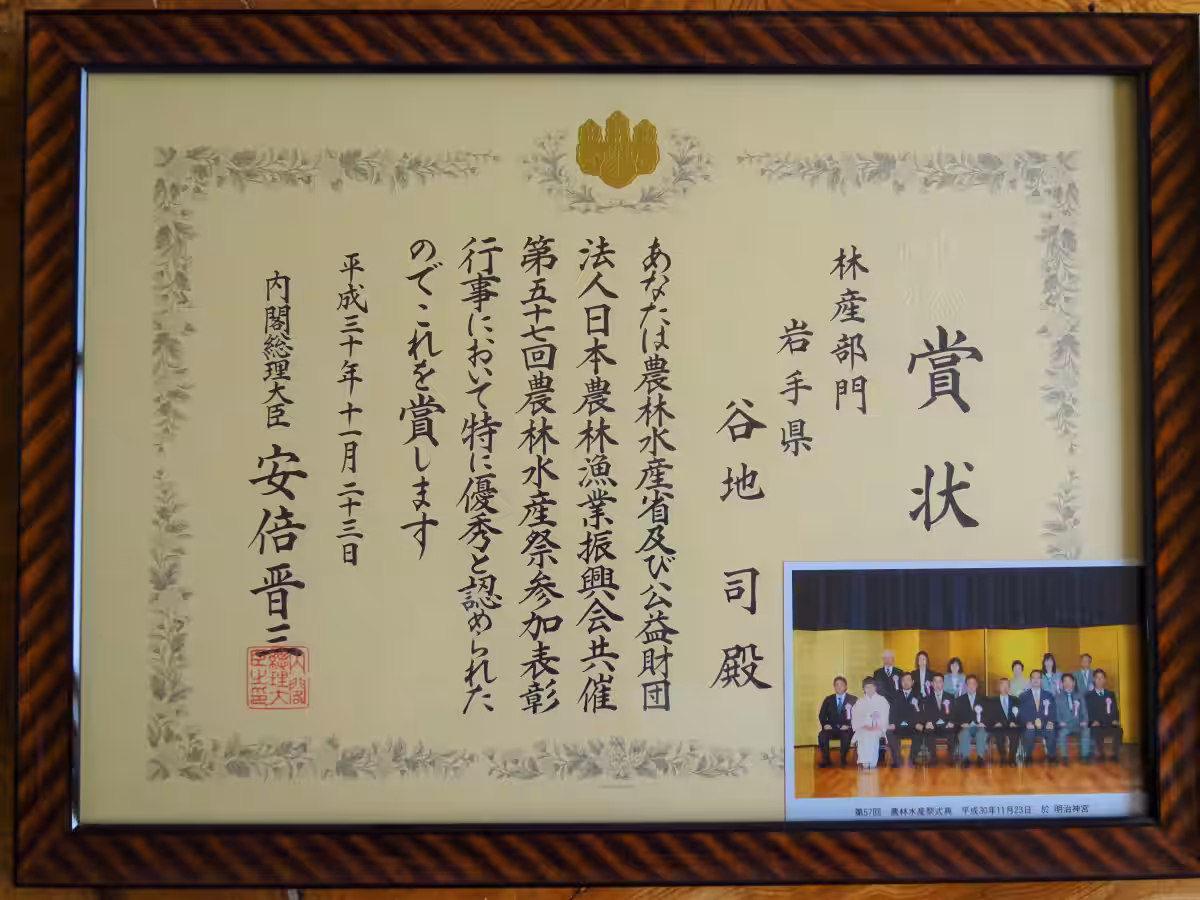 賞状
林産部門
岩手県
谷地 司 殿
あなたは農林水産省及び公益財団
法人日本農林漁業振興会共催
第五十七回農林水産祭参加表彰
行事において特に優秀と認められた
のでこれを賞します
平成三十年十一月二十三日
内閣総理大臣 安倍晋三
内閣総理大臣之印
第57回 農林水産祭式典 平成30年11月23日 於 明治神宮